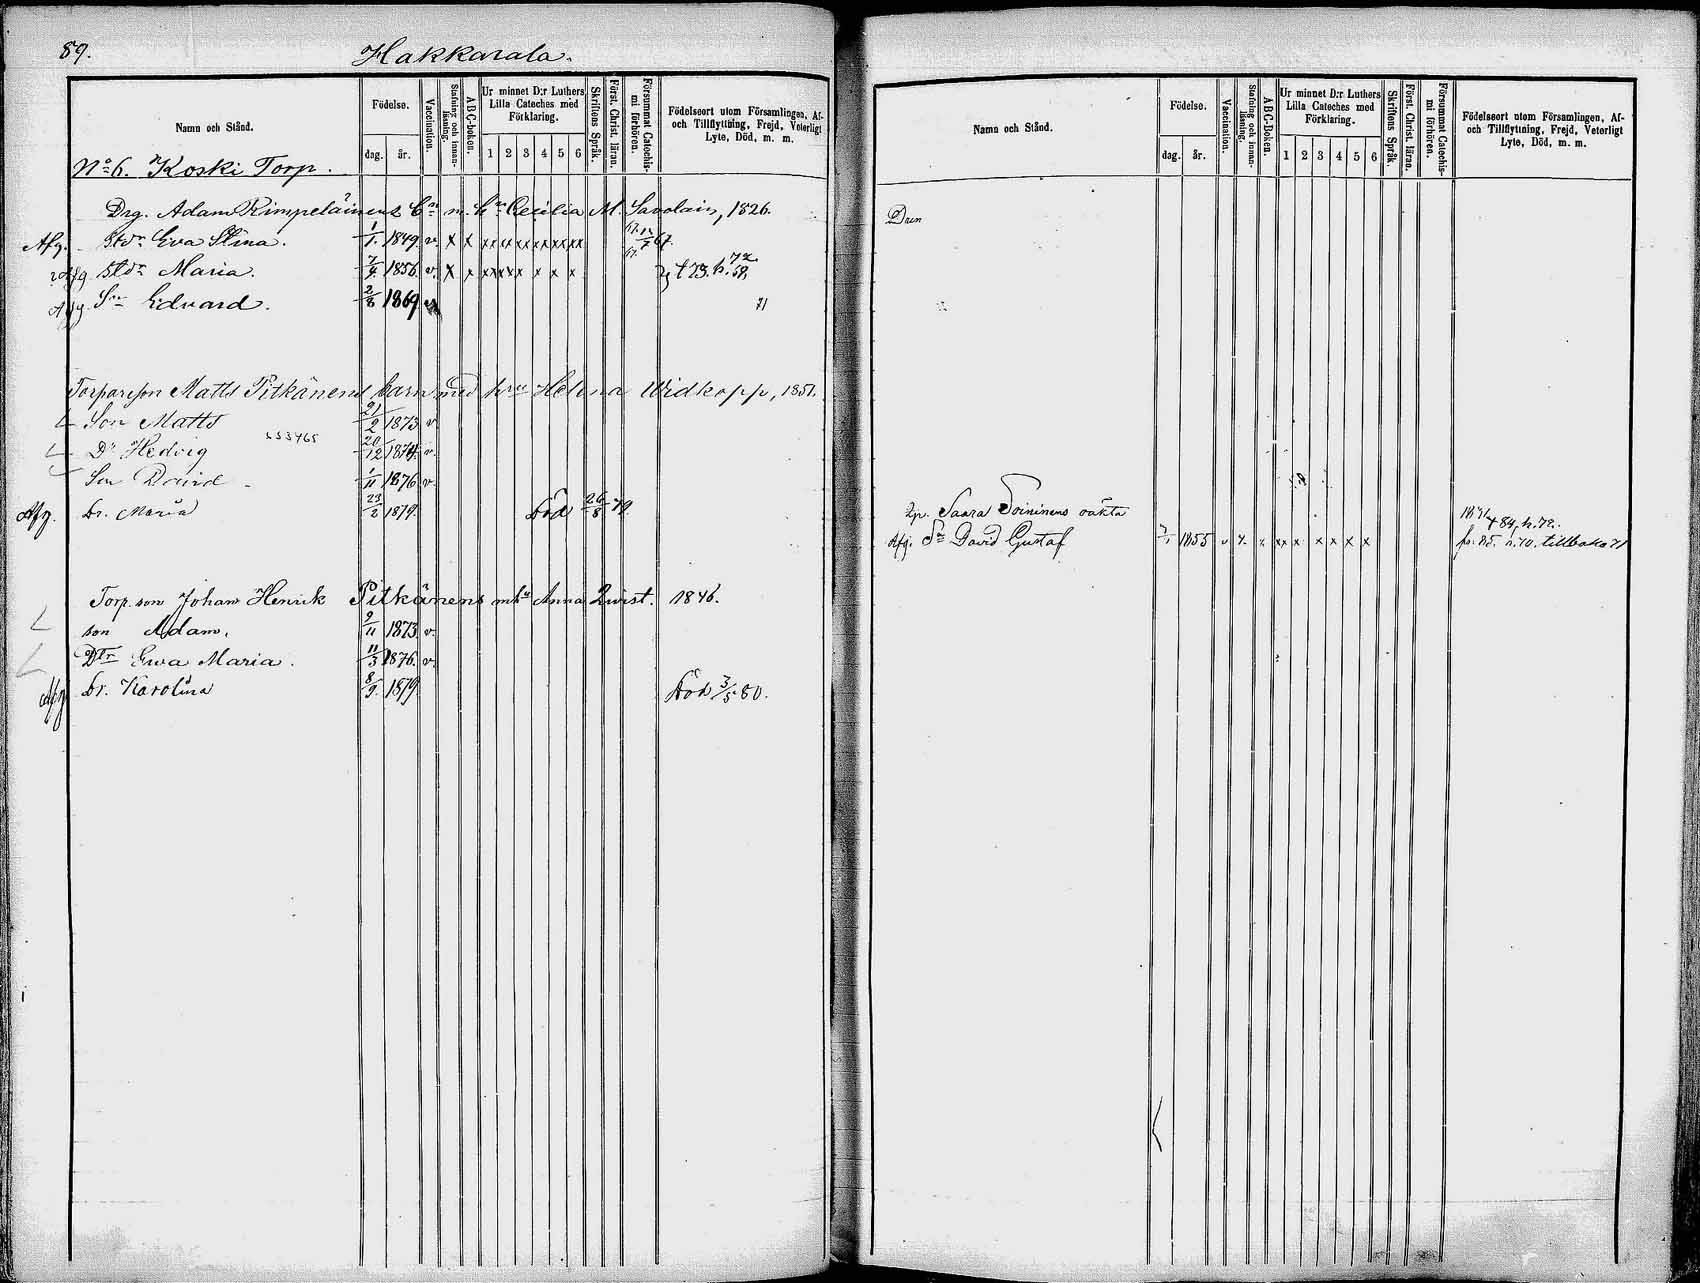 89.
Hakkarala.
Namn och Stånd.
Födelse.
dag. år.
Vaccination.
Stafning och innan-läsning.
A B C-boken.
Ur minnet D:r Luthers Lilla Cateches med Förklaring.
1 2 3 4 5 6
Skriftens Språk.
Först. Christ. läran.
Försummat Catechismi förhören.
Födelseort utom Församlingen, Af- och Tillflyttning, Frejd, Veterligt Lyte, Död, m. m.
No 6. Koski Torp.
Drg. Adam Rimpeläinens m. hu Cecilia M. Savolain, 1826.
Afg. Stdr Eva Stina. 1/1. 1849. v. x x x x x x x x x x x x 67.
Afg Stdr Maria. 7/4. 1856. v. x x x x x x x x x x 73. 72
Afg Sn Edvard. 2/8 1869 v 71
Torpareson Matts Pitkänens barn med hru Helena Widkopp, 1851.
Son Matts 21/2 1873 v
Dr Hedvig 20/12 1874. v.
Son David 1/11 1876 v.
Afg. Dr. Maria 23/2 1879. Död 26/8 79.
Torp. son Johan Henrik Pitkänens m hu Anna Qvist. 1846.
son Adam. 9/11 1873 v.
Dtr Ewa Maria. 11/3 1876. v.
Afg Dr. Karolina 8/9. 1879 Död 3/5 80.
Namn och Stånd.
Födelse.
dag. år.
Vaccination.
Stafning och innan-läsning.
A B C-boken.
Ur minnet D:r Luthers Lilla Cateches med Förklaring.
1 2 3 4 5 6
Skriftens Språk.
Först. Christ. läran.
Försummat Catechismi förhören.
Födelseort utom Församlingen, Af- och Tillflyttning, Frejd, Veterligt Lyte, Död, m. m.
Saara Toininens oäkta
Afg. Sn David Gustaf 1855 v x x x x x x x x 84, tillbaka 71